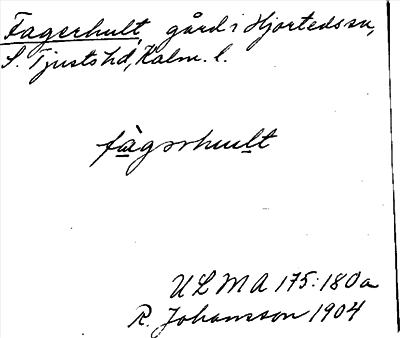 Fagerhult, gård i Hjorteds sn,
S. Tjusts hd, Kalm. l.
fàgərhult
ULMA 175:180a
R. Johansson 1904